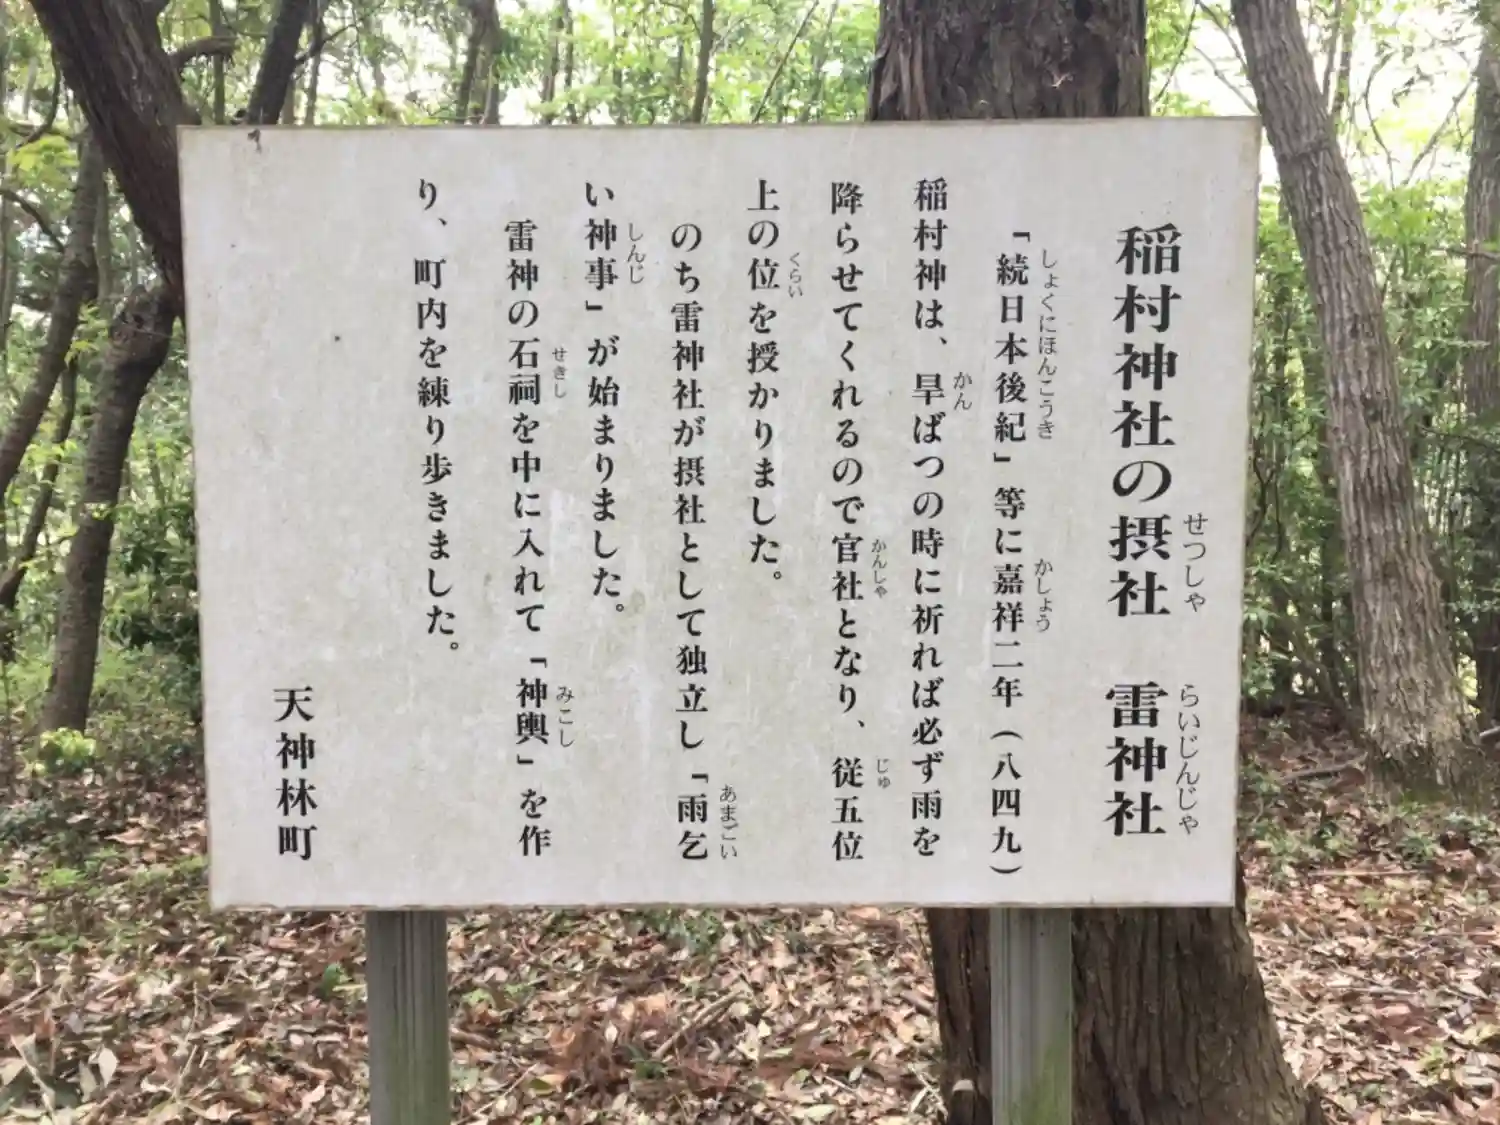 稲村神社の摂社　雷神社
「続日本後紀」等に嘉祥二年（八四九）
稲村神は、旱ばつの時に祈れば必ず雨を
降らせてくれるので官社となり、従五位
上の位を授かりました。
のち雷神社が摂社として独立し「雨乞
い神事」が始まりました。
雷神の石祠を中に入れて「神輿」を作
り、町内を練り歩きました。
天神林町
せつしゃ
らいじんじゃ
しょくにほんこうき
かしょう
かん
かんしゃ
じゅ
くらい
あまごい
しんじ
せきし
みこし